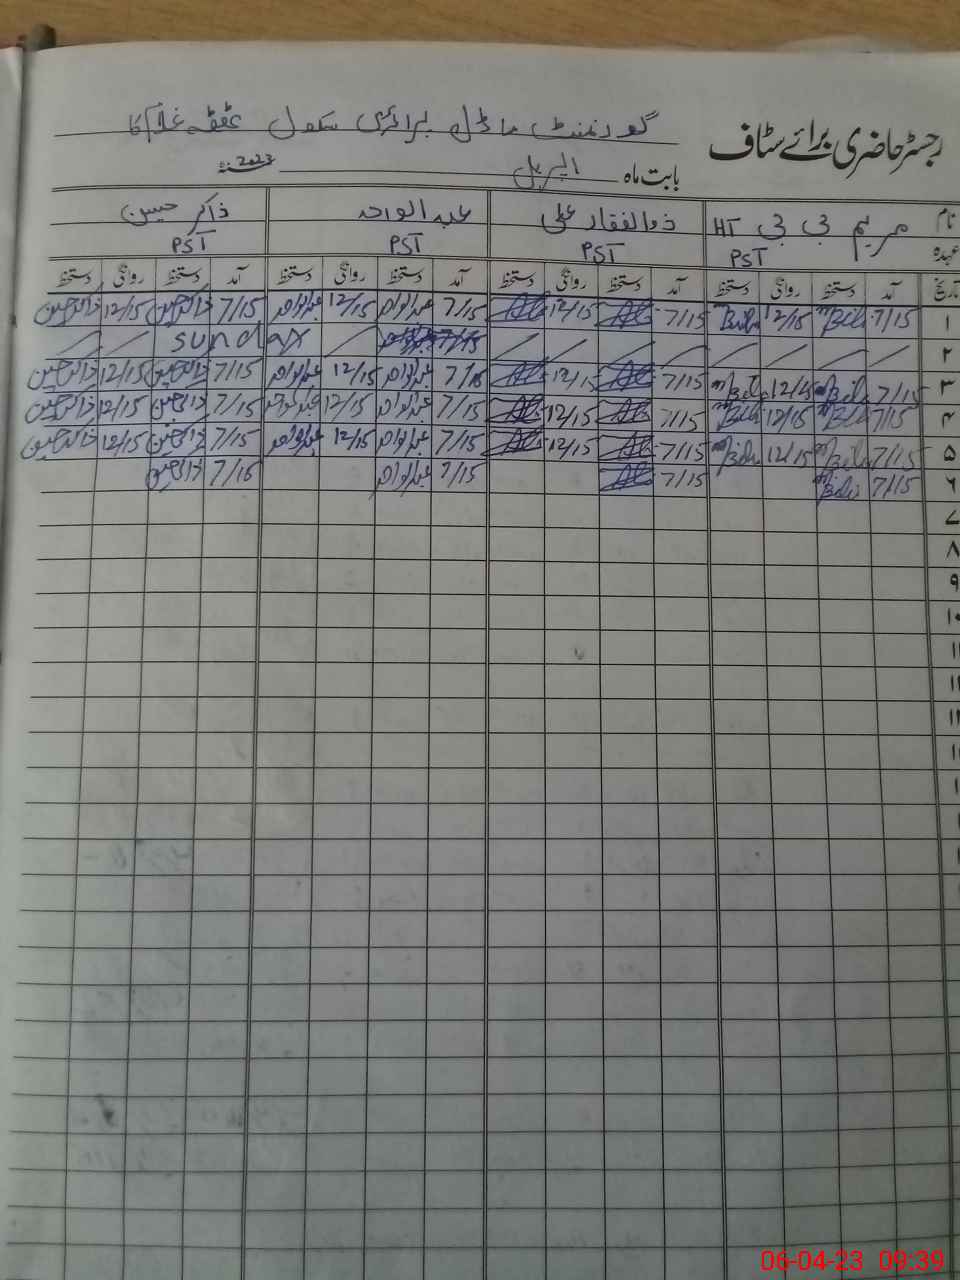 رجسٹر حاضری برائے سٹاف
گورنمنٹ ماڈل پرائمری سکول
بابت ماہ اپریل 2023
نام مریم بی بی HT ذوالفقار علی عبدالواحد ذاکر حسین
عہدہ PST PST PST PST
تاریخ آمد دستخط روانگی دستخط آمد دستخط روانگی دستخط آمد دستخط روانگی دستخط آمد دستخط روانگی دستخط
۱ 7/15 MBibi 12/15 MBibi 7/15 12/15 7/15 عبدالواحد 12/15 عبدالواحد 7/15 ذاکر حسین 12/15 ذاکر حسین
۲ Sunday
۳ 7/15 MBibi 12/15 MBibi 7/15 12/15 7/15 عبدالواحد 12/15 عبدالواحد 7/15 ذاکر حسین 12/15 ذاکر حسین
۴ 7/15 MBibi 12/15 MBibi 7/15 12/15 7/15 عبدالواحد 12/15 عبدالواحد 7/15 ذاکر حسین 12/15 ذاکر حسین
۵ 7/15 MBibi 12/15 MBibi 7/15 12/15 7/15 عبدالواحد 12/15 عبدالواحد 7/15 ذاکر حسین 12/15 ذاکر حسین
۶ 7/15 MBibi 7/15 7/15 عبدالواحد 7/15 ذاکر حسین
۷
۸
۹
۱۰
06-04-23 09:39